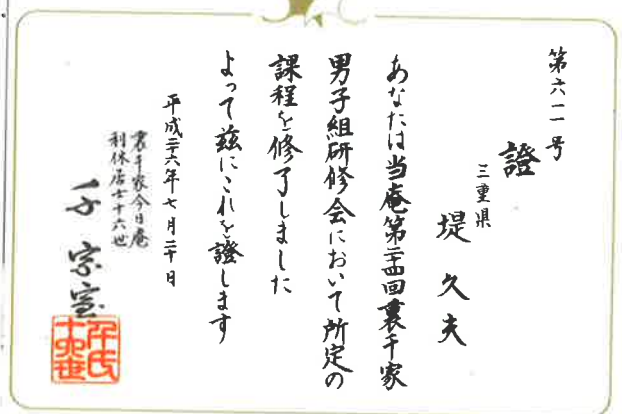 第六一一号
證
三重県
堤久夫
あなたは当庵第三十四回裏千家
男子組研修会において所定の
課程を修了しました
よって茲にこれを證します
平成二十六年七月二十日
裏千家今日庵
利休居士十六世
千宗室
千氏
十六世